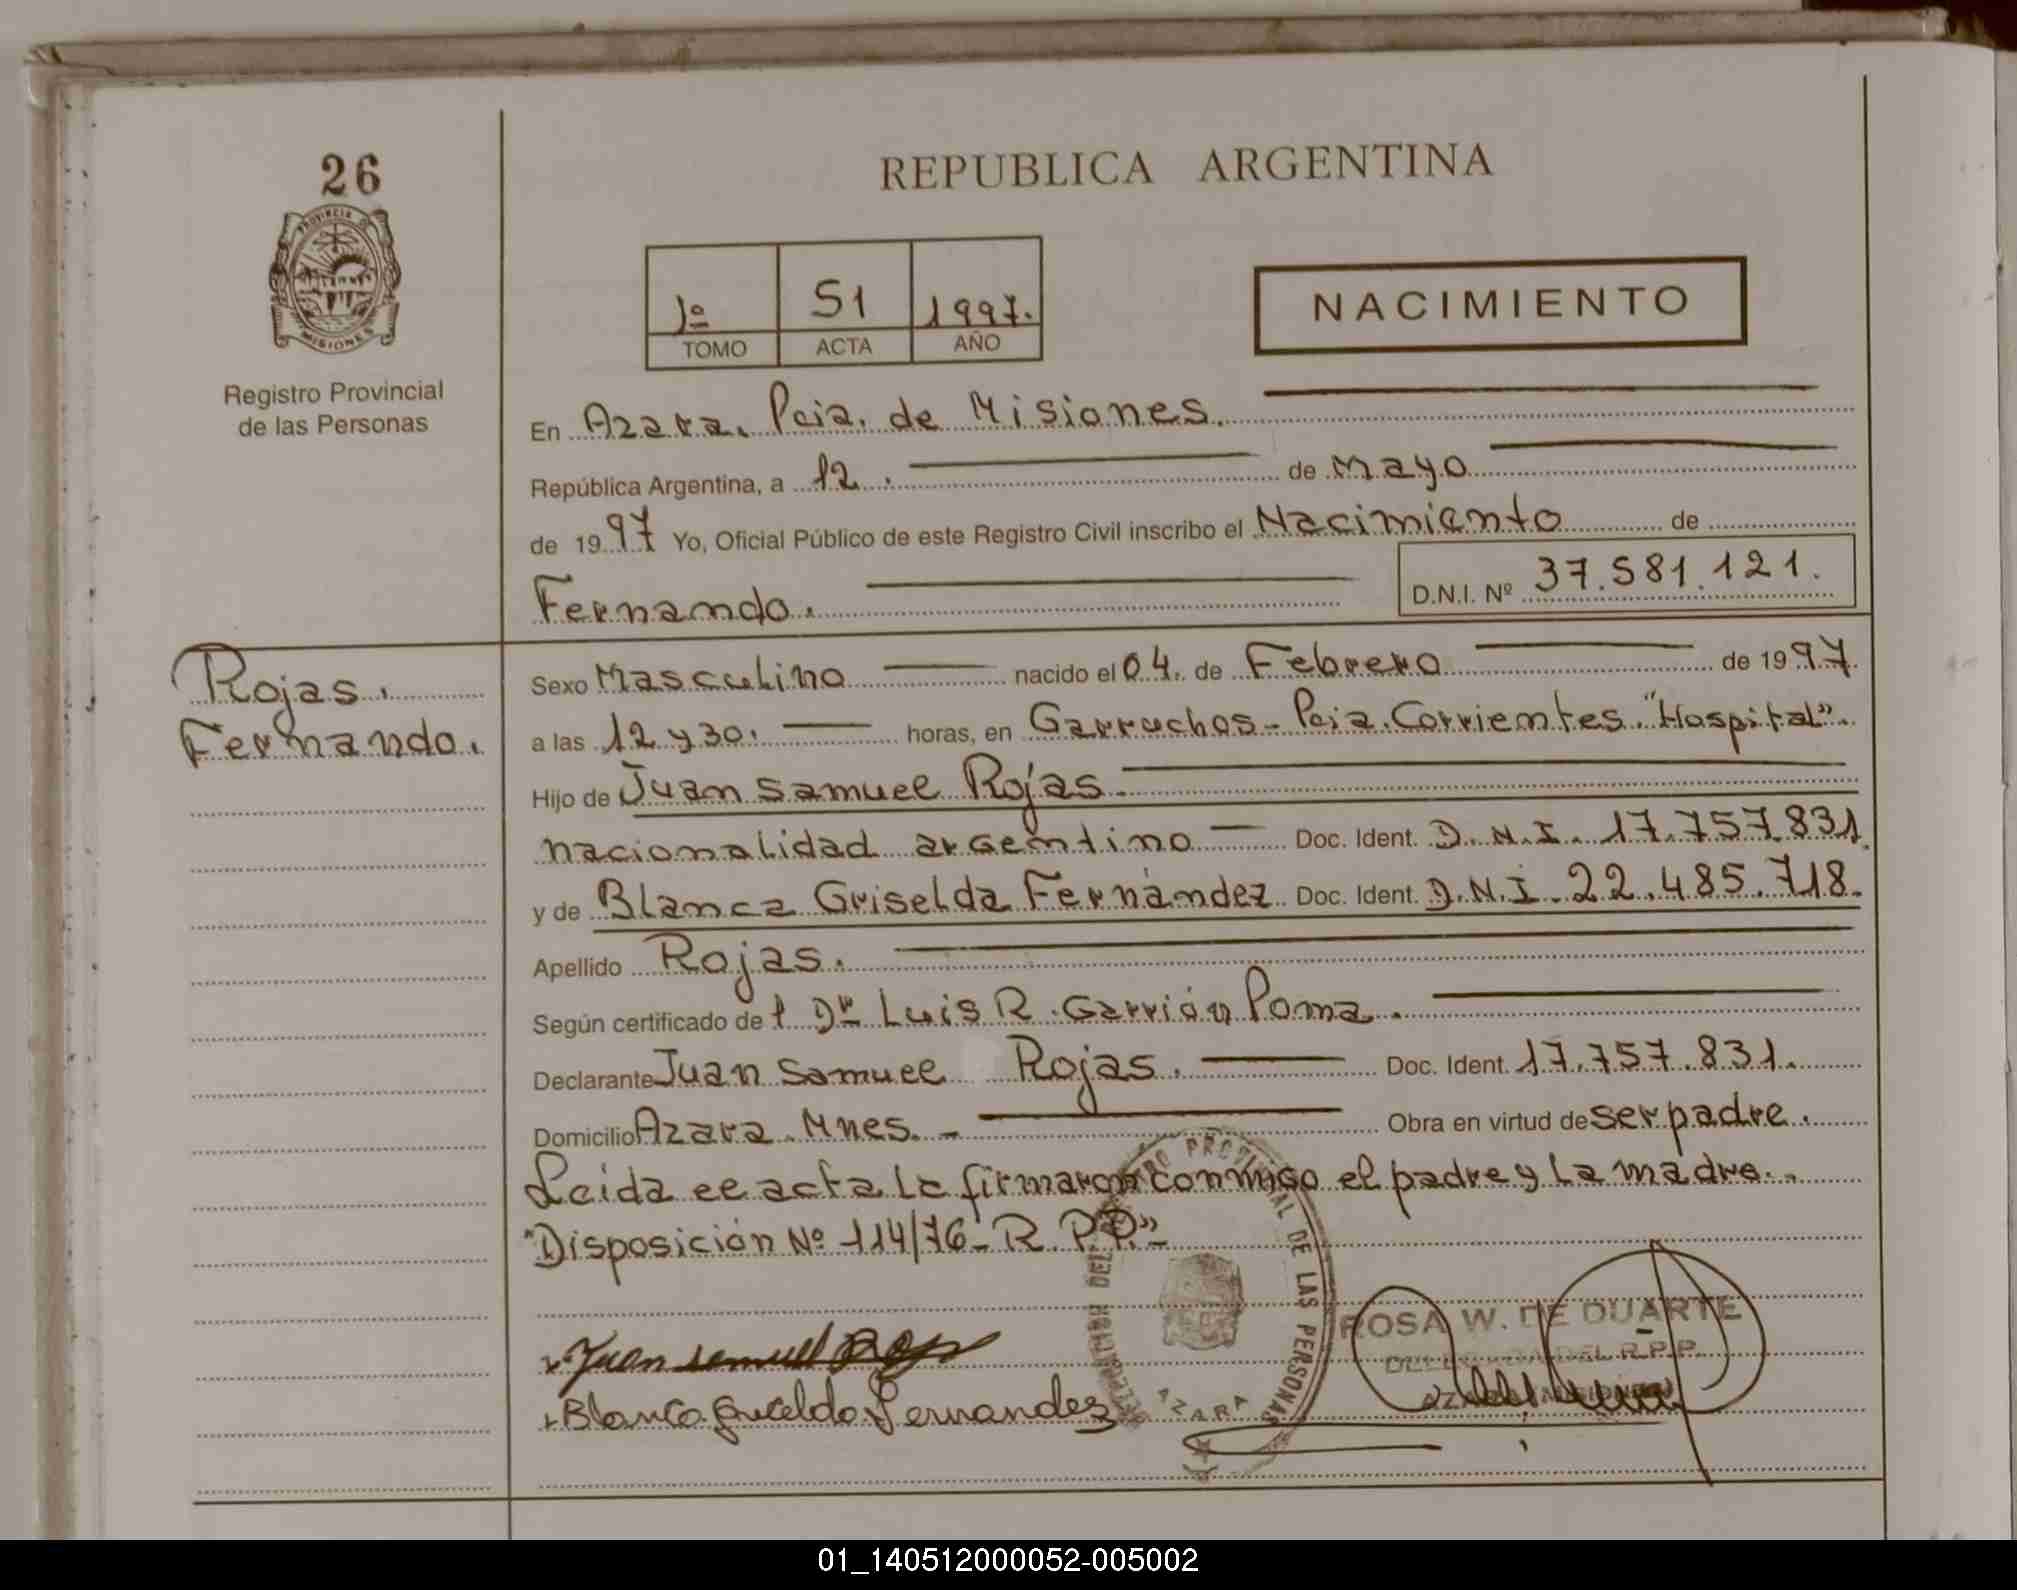 26
PROVINCIA
MISIONES
Registro Provincial
de las Personas
REPUBLICA ARGENTINA
1º 51 1997.
TOMO ACTA AÑO
NACIMIENTO
En Azara. Pcia. de Misiones.
República Argentina, a 12. de Mayo
de 1997 Yo, Oficial Público de este Registro Civil inscribo el Nacimiento de
Fernando.
D.N.I. Nº 37.581.121.
Rojas.
Fernando.
Sexo Masculino nacido el 04. de Febrero de 1997.
a las 12 y 30. horas, en Garruchos - Pcia. Corrientes. "Hospital".
Hijo de Juan Samuel Rojas.
nacionalidad argentino Doc. Ident. D.N.I. 17.757.831.
y de Blanca Griselda Fernández Doc. Ident. D.N.I. 22.485.718.
Apellido Rojas.
Según certificado del Dr Luis R. Garrión Poma.
Declarante Juan Samuel Rojas. Doc. Ident. 17.757.831.
Domicilio Azara. Mnes. - Obra en virtud de ser padre.
Leida el acta la firmaron conmigo el padre y la madre.
"Disposición Nº 114/76 - R.P.P." -
PROVINCIAL DE LAS PERSONAS
AZARA
ROSA W. DE DUARTE
DELEGADA DEL R.P.P.
AZARA MISIONES
Juan Samuel Rojas
Blanca Griselda Fernandez
01_140512000052-005002